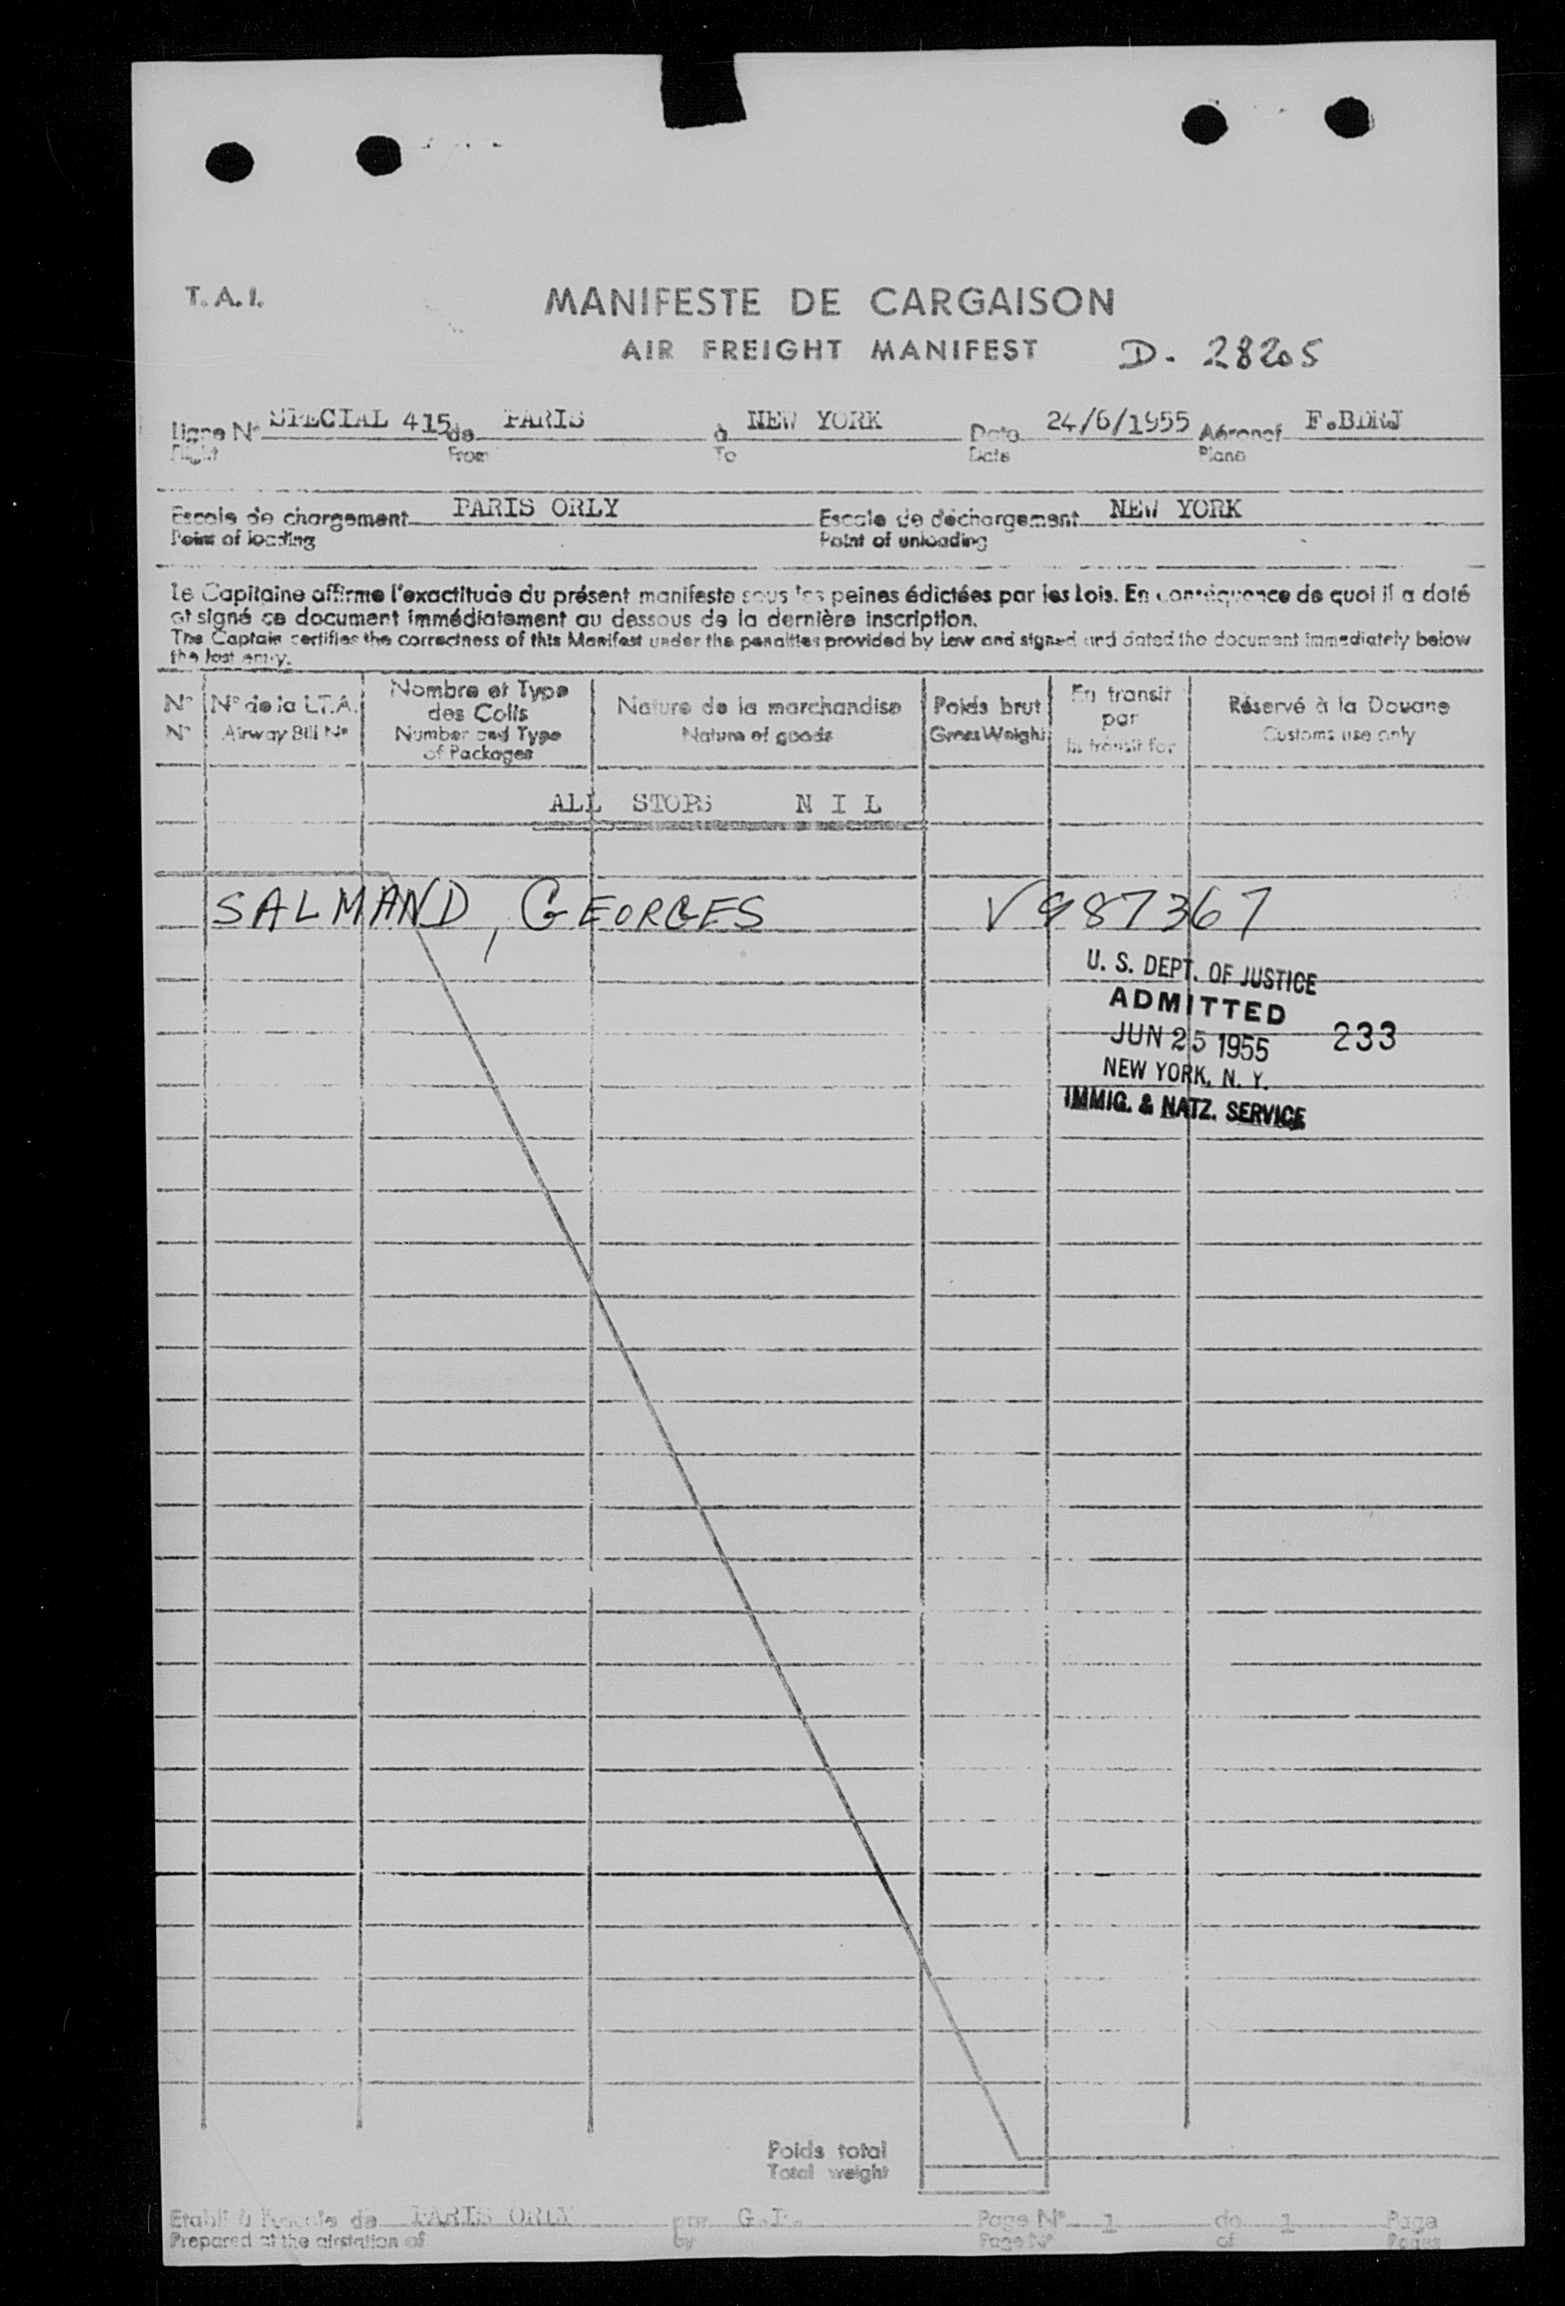 T. A. I.
MANIFESTE DE CARGAISON
AIR FREIGHT MANIFEST D. 28205
Ligne N° SPECIAL 415 de PARIS à NEW YORK Date 24/6/1955 Aéronef F.BDRJ
Flight From To Date Plane
Escale de chargement PARIS ORLY Escale de déchargement NEW YORK
Point of loading Point of unloading
Le Capitaine affirme l'exactitude du présent manifeste sous les peines édictées par les lois. En conséquence de quoi il a daté
et signé ce document immédiatement au dessous de la dernière inscription.
The Captain certifies the correctness of this Manifest under the penalties provided by Law and signed and dated the document immediately below
the last entry.
N° N° de la L.T.A. Nombre et Type des Colis Nature de la marchandise Poids brut En transit par Réservé à la Douane
N° Airway Bill N° Number and Type of Packages Nature of goods Gross Weight In transit for Customs use only
ALL STOPS N I L
SALMAND, GEORGES V987367
U. S. DEPT. OF JUSTICE
ADMITTED
JUN 25 1955 233
NEW YORK, N. Y.
IMMIG. & NATZ. SERVICE
Poids total
Total weight
Etabli à l'escale de PARIS ORLY par Page N° 1 de 1 Page
Prepared at the airstation of by Page N° of Pages